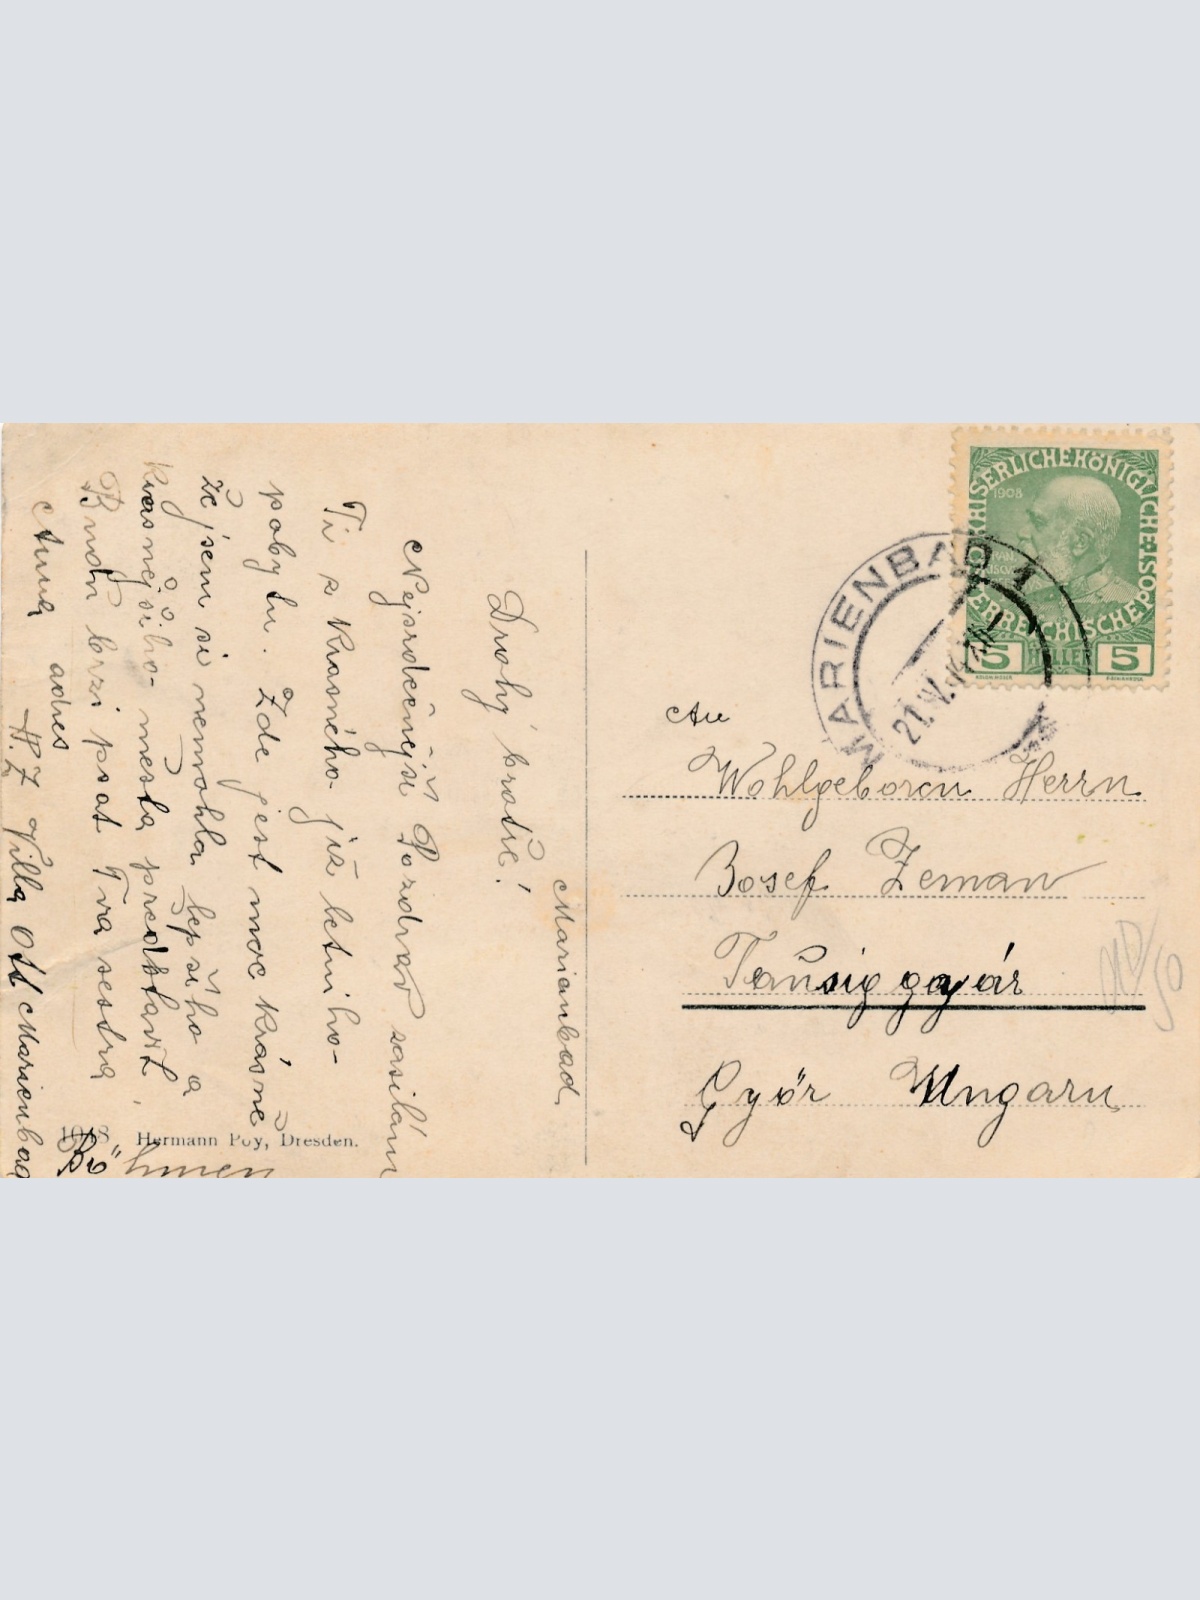 Marianbad
Drahý bratře!
Nejsrdečnější Pozdrav zasílám
Ti z krásného již letního-
pobytu. Zde jest moc krásně
že jsem si nemohla lepšího a
krásnějšího- města predstavit,
Budu brzi psat Tva sestra
Anna adres
A.Z Villa Ott Marienbad
Böhmen
Hermann Poy, Dresden.
KAISERLICHE KÖNIGLICHE ÖSTERREICHISCHE POST
1908
5 HELLER 5
MARIENBAD 1
21.IV.14
An
Wohlgeboren Herrn
Josef Zeman
Tausig gyár
Győr Ungarn